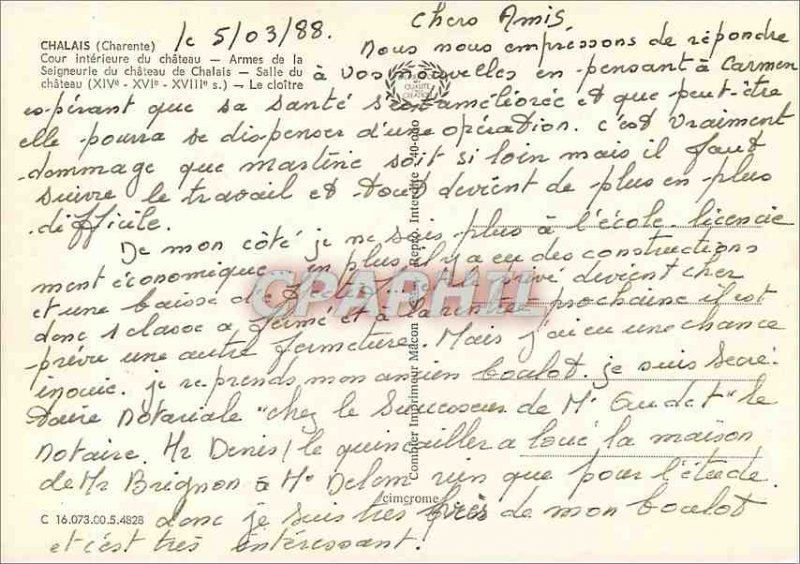 CHALAIS (Charente)
Cour intérieure du château — Armes de la
Seigneurie du château de Chalais — Salle du
château (XIVe - XVIe - XVIIIe s.) — Le cloître
le 5/03/88.
Chers Amis
Nous nous empressons de répondre
à vos nouvelles en pensant à Carmen
espérant que sa santé s'est améliorée et que peut-être
elle pourra se dispenser d'une opération. C'est vraiment
dommage que martine soit si loin mais il faut
suivre le travail et tout devient de plus en plus
difficile.
De mon côté je ne suis plus à l'école. licencie
ment économique. en plus il y a eu des constructions
et une baisse de et le privé devient cher
donc 1 classe a fermé et à la rentrée prochaine il est
prévu une autre fermeture. Mais j'ai eu une chance
inouie. je reprends mon ancien boulot. je suis Secré-
taire Notariale "chez le Successeur de Me Gudet" le
Notaire. Mr Denis/le quincailler a loué la maison
de Mr Brignon à Me Delom rien que pour l'étude.
donc je suis très près de mon boulot
et c'est très intéressant.
Combier Imprimeur Mâcon Repro. Interdite
cimcrome
C 16.073.00.5.4828
QUALITE
CPAPHIL